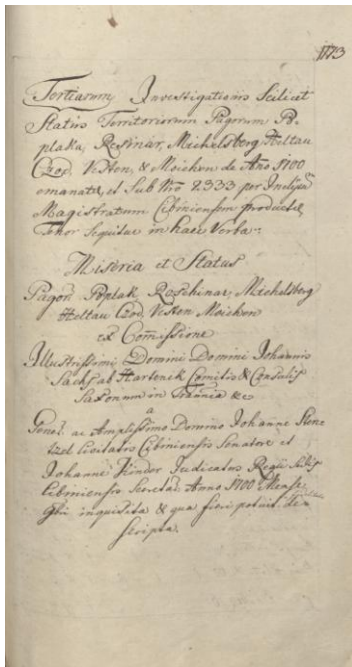 1773
Tertiarum Investigationis Scilicet
Status Territoriorum Pagorum Po-
plaka, Resinar, Michelsberg, Heltau
Czod, Vesten, & Moichen de Año 1700
emanatæ, et Sub Nro 2333 per
Magistratum Cibiniensem productæ,
Tenor Sequitur in haec Verba:
Miseria et Status
Pagor Poplak, Roschinar, Michelsberg
Heltau Czod, Vesten Moichen
ex Comissione
Illustrissimi Domini Domini Johannis
Sachs ab Hartenek Comitis & Consulis
Saxonum in Trannia &c
a
Genel. ac Amplissimo Domino Johanne Stenc
zel Civitatis Cibiniensis Senatore et
Johanne Kinder Judicatus Regii
Cibiniensis Secretar Anno 1700 Mense
inquisita & qua fieri potuit de-
scripta.